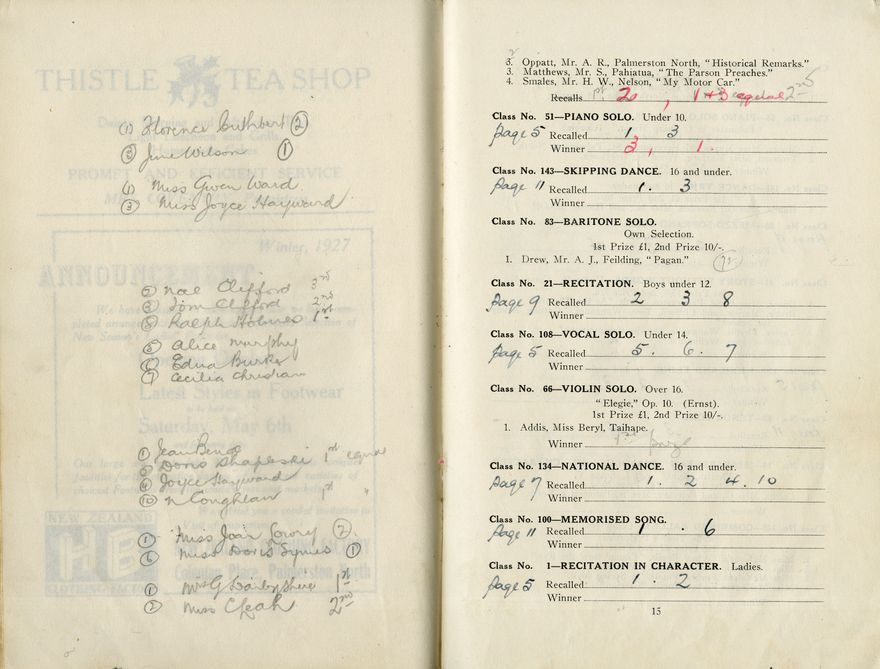 THISTLE TEA SHOP
PROMPT AND EFFICIENT SERVICE
(1) Florence Cuthbert (2)
(3) June Wilson (1)
(1) Miss Gwen Ward
(3) Miss Joyce Hayward
Winter, 1927
ANNOUNCEMENT
(2) Noel Clifford 3rd
(3) Tom Clifford 2nd
(8) Ralph Holmes 1st
(5) Alice Murphy
(6) Edna Burke
(7) Cecilia Christian
Latest Styles in Footwear
Saturday, May 6th
(1) Jean Benge
Doris Shapleski 1st equal
(4) Joyce Hayward
(10) N Coughlan 1st "
(1) Miss Joan Lowry (2)
(6) Miss Doris Symes (1)
(1) Mrs G Darbyshire 1st
(2) Miss C Leah 2nd
NEW ZEALAND
CLOTHING FACTORY
Palmerston North
2
3. Oppatt, Mr. A. R., Palmerston North, "Historical Remarks."
3. Matthews, Mr. S., Pahiatua, "The Parson Preaches."
4. Smales, Mr. H. W., Nelson, "My Motor Car."
Recalls 1st 2, 1+3 equal 2nds
Class No. 51—PIANO SOLO. Under 10.
Page 5 Recalled 1. 3
Winner 3, 1.
Class No. 143—SKIPPING DANCE. 16 and under.
Page 11 Recalled 1. 3
Winner
Class No. 83—BARITONE SOLO.
Own Selection.
1st Prize £1, 2nd Prize 10/-.
1. Drew, Mr. A. J., Feilding, "Pagan."
Class No. 21—RECITATION. Boys under 12.
Page 9 Recalled 2 3 8
Winner
Class No. 108—VOCAL SOLO. Under 14.
Page 5 Recalled 5. 6. 7
Winner
Class No. 66—VIOLIN SOLO. Over 16.
"Elegie," Op. 10. (Ernst).
1st Prize £1, 2nd Prize 10/-.
1. Addis, Miss Beryl, Taihape.
Winner 1st prize
Class No. 134—NATIONAL DANCE. 16 and under.
Page 7 Recalled 1. 2 4. 10
Winner
Class No. 100—MEMORISED SONG.
Page 11 Recalled 1. 6
Winner
Class No. 1—RECITATION IN CHARACTER. Ladies.
Page 5 Recalled 1. 2
Winner
15